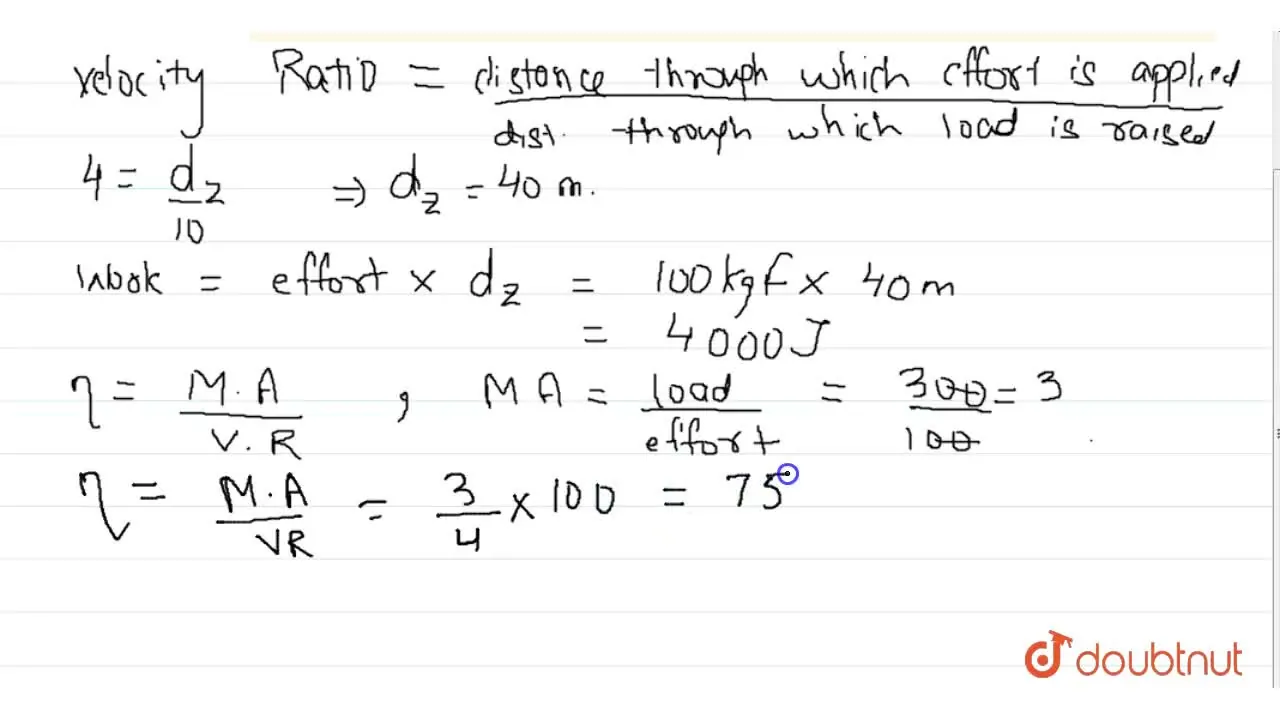 velocity Ratio = distance through which effort is applied
dist. through which load is raised
4 = d2/10 => d2 = 40 m.
= effort x d2 = 100kgf x 40 m
= 4000J
η = M.A/V.R , MA = load/effort = 300/100 = 3
η = M.A/VR = 3/4 x 100 = 75
doubtnut